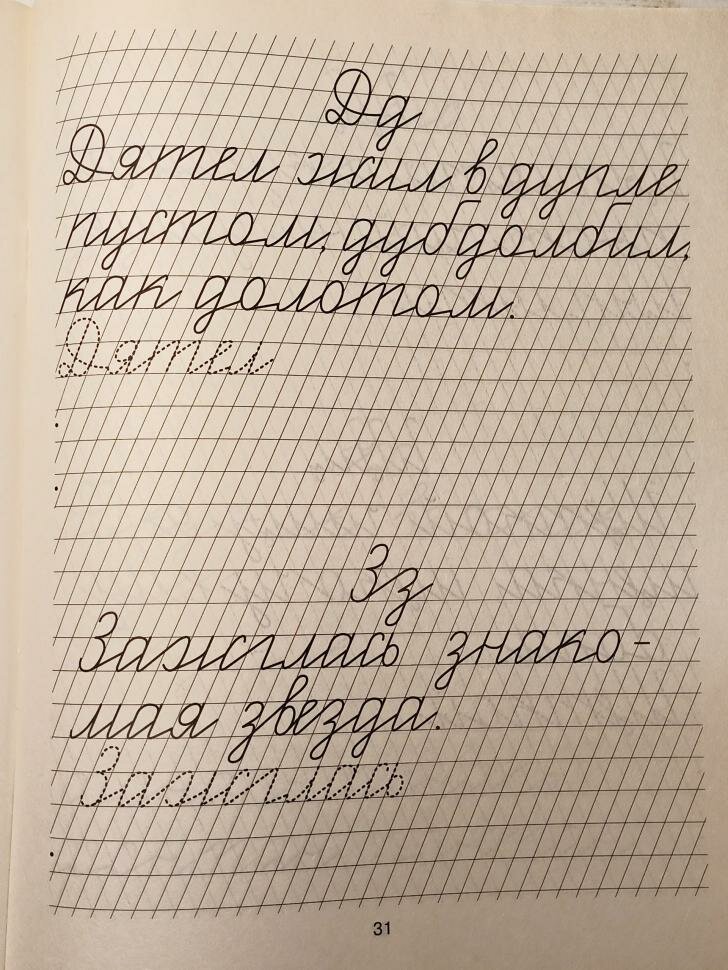 Дд
Дятел жил в дупле
пустом, дуб долбил,
как долотом.
Дятел
Зз
Зажглась знако-
мая звезда.
Зажглась
31